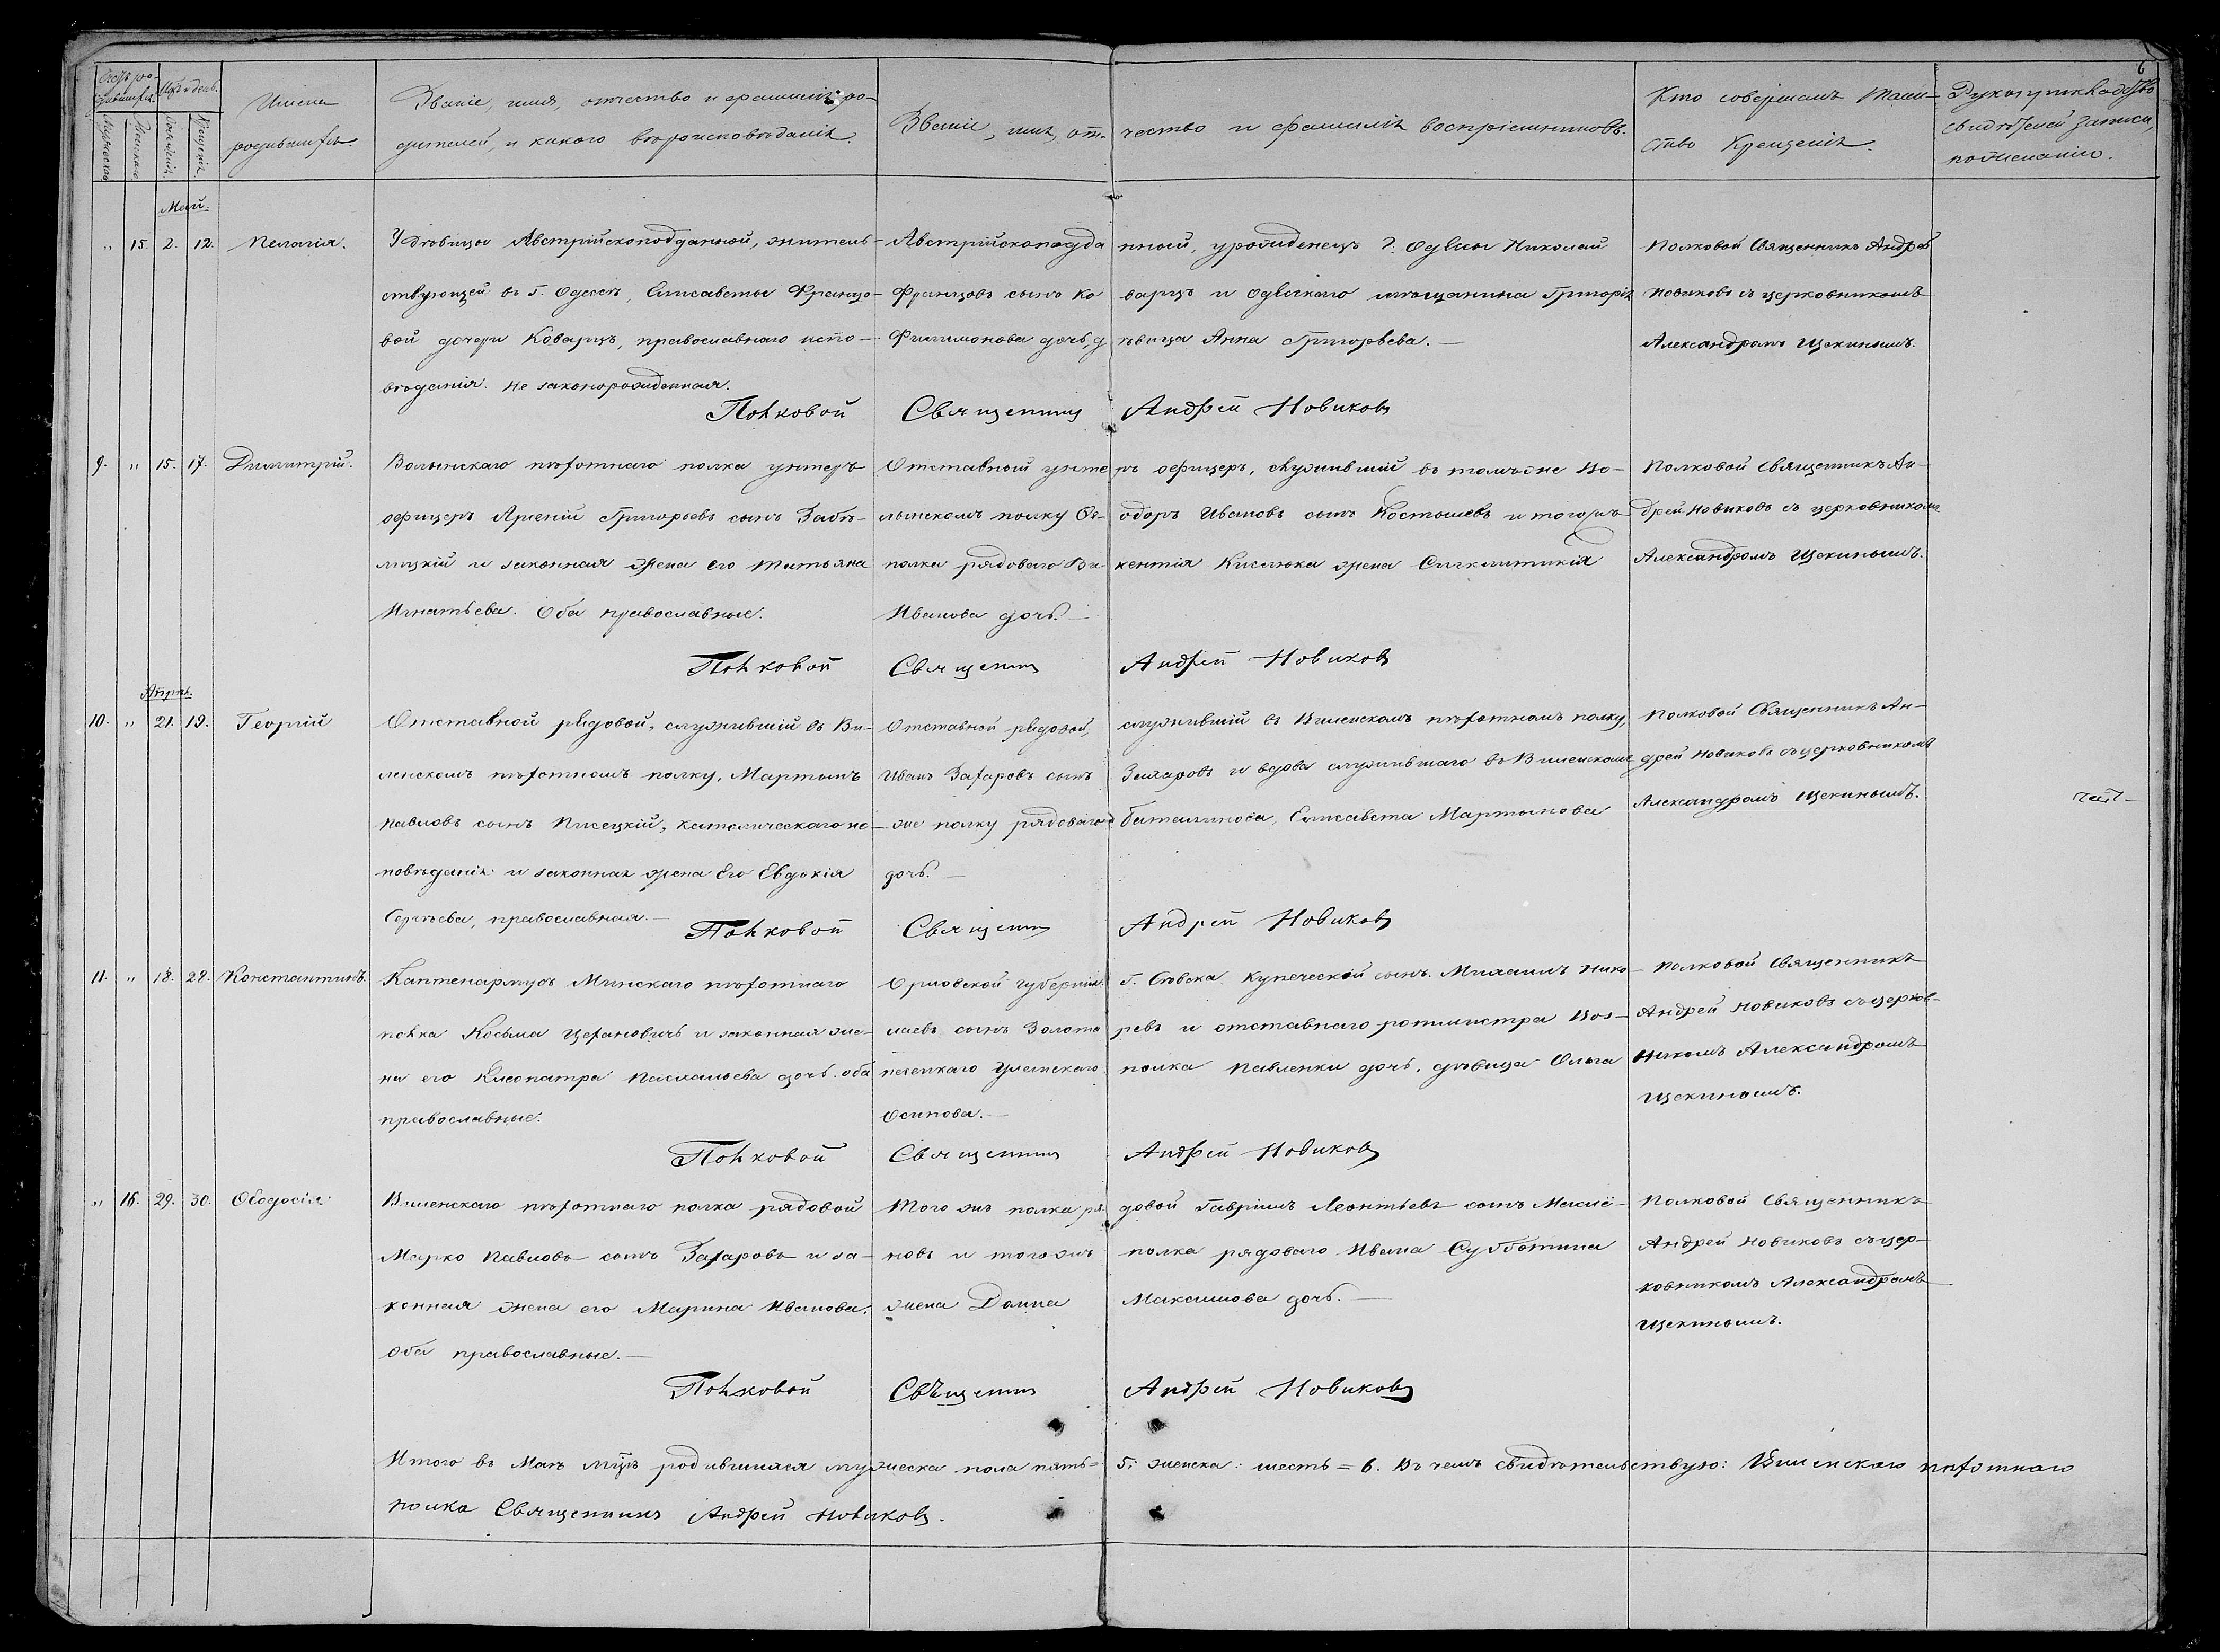 6
Счетъ ро-
дившихся.
Мужеска
Женска
Мѣс. и день.
Рожденія.
Крещенія.
Имена
родившихся.
Званіе, имя, отчество и фамилія ро-
дителей, и какого вѣроисповѣданія.
Званіе, имя, от- чество и фамилія воспріемниковъ.
Кто совершалъ таин-
ство Крещенія.
Рукоприкладство
свидѣтелей записи,
по желанію.
Май.
" 15. 2. 12. Пелагія.
У дѣвицы Австрійскоподданной, житель-
ствующей въ г. Одессѣ, Елисаветы Францо-
вой дочери Коварцъ, православнаго испо-
вѣданія. Не законорожденная.
Австрійскоподда нный, уроженецъ г. Одессы Николай
Францовъ сынъ Ко варцъ и Одесскаго мѣщанина Григорія
Филимонова дочь, д ѣвица Анна Григорьева. —
Полковой Священникъ Андрей
Новиковъ съ церковникомъ
Александромъ Щекинымъ.
Полковой Священникъ Андрей Новиковъ
9. " 15. 17. Димитрій.
Волынскаго пѣхотнаго полка унтеръ
офицеръ Арсеній Григорьевъ сынъ Забѣ-
лицкій и законная жена его Татьяна
Игнатьева. Оба православные.
Отставный унте ръ офицеръ, служившій въ томъ же Во-
лынскомъ полку Ѳе- одоръ Ивановъ сынъ Костышевъ и того жъ
полка рядоваго Ви- кентія Кислюка жена Сигклитикія
Иванова дочь. —
Полковой Священникъ Ан-
дрей Новиковъ съ церковникомъ
Александромъ Щекинымъ.
Полковой Священникъ Андрей Новиковъ
Апрѣл.
10. " 21. 19. Георгій
Отставной рядовой, служившій въ Ви-
ленскомъ пѣхотномъ полку, Мартынъ
Павловъ сынъ Писецкій, католическаго ис-
повѣданія и законная жена Его Евдокія
Сергѣева, православная. —
Отставной рядовой, служившій въ Виленскомъ пѣхотномъ полку,
Иванъ Захаровъ сынъ Захаровъ и вдова служившаго въ Виленскомъ
же полку рядоваго Елисавета Мартынова
дочь. —
Полковой Священникъ Ан-
дрей Новиковъ съ церковникомъ
Александромъ Щекинымъ.
Полковой Священникъ Андрей Новиковъ
11. " 18. 28. Константинъ.
Каптенармусъ Минскаго пѣхотнаго
полка Косьма Цехановичъ и законная же-
на его Клеопатра дочь. оба
православные.
Орловской губерніи г. Сѣвска Купеческой сынъ. Михаилъ Нико-
лаевъ сынъ Золота ревъ и отставнаго ротмистра Воз-
несенскаго Уланскаго полка Павленки дочь, дѣвица Ольга
Осипова. —
Полковой Священникъ
Андрей Новиковъ съ церков-
никомъ Александромъ
Щекинымъ.
Полковой Священникъ Андрей Новиковъ
" 16. 29. 30. Ѳеодосія
Виленскаго пѣхотнаго полка рядовой
Марко Павловъ сынъ Захаровъ и за-
конная жена его Марина Иванова.
Оба православные. —
Того жъ полка ря довой Гавріилъ Леонтьевъ сынъ
новъ и того жъ полка рядоваго Ивана Субботина
жена Домна Максимова дочь. —
Полковой Священникъ
Андрей Новиковъ съ цер-
ковникомъ Александромъ
Щекинымъ.
Полковой Священникъ Андрей Новиковъ
Итого въ Маѣ мѣцѣ родившихся мужеска пола пять = 5. женска: шесть = 6. Въ чемъ свидѣтельствую: Виленскаго пѣхотнаго
полка Священникъ Андрей Новиковъ.